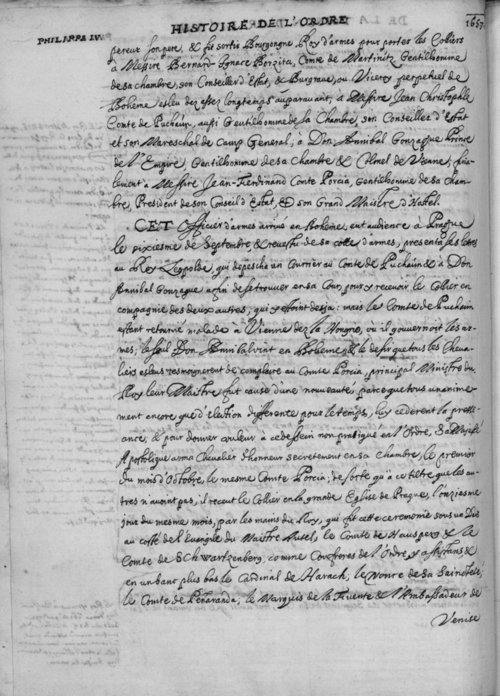 HISTOIRE DE L'ORDRE
1657.
PHILIPPE IV.
pereur son pere, & fit sortir Bourgongne Roy d'armes pour porter les Colliers
à Messire Bernard-Ignace Borzita, Comte de Martinitz, Gentilhomme
de sa chambre, son Conseiller d'Estat, & Burgrave, ou Viceroy perpetuel de
Boheme esleu dez assez longtemps auparavant, à Messire Jean Christophle
Comte de Puchaim, aussi Gentilhomme de la Chambre, son Conseiller d'Estat
et son Mareschal de Camp General, à Don Annibal Gonzague Prince
de l'Empire Gentilhomme de sa Chambre & Colonel de Vienne, & fina-
lement à Messire Jean-Ferdinand Comte Porcia, Gentilhomme de sa Cham-
bre, President de son Conseil d'Estat, & son Grand Maistre d'Hostel.
CET Officier d'armes arrivé en Boheme, eut audience à Prague
le sixiesme de Septembre & revestu de sa cotte d'armes, presenta les lettres
au Roy Leopolde, qui depescha un Courrier au Comte de Puchaim & à Don
Annibal Gonzague afin de se trouver en sa Cour, pour y recevoir le Collier en
compagnie des deux autres, qui y estoint desja: mais le Comte de Puchaim
estant retourné malade à Vienne dez la Hongrie, ou il gouvernoit les ar-
mes, le seul Don Annibal vint en Boheme, & le desir que tous les Cheva-
liers eslus tesmoignerent de complaire au Comte Porcia, principal Ministre du
Roy leur Maistre fut cause d'une nouveauté, parce que tous unanime-
ment encore que d'élection differente pour le temps, luy cederent la presse-
ance, & pour donner couleur à ce dessein non pratiqué en l'Ordre, Sa Majesté
Apostolique arma Chevalier d'honneur secretement en sa Chambre, le premier
du mois d'Octobre, le mesme Comte Porcia; de sorte qu'à ce tiltre que les au-
tres n'avoint pas, il receut le Collier en la grande Eglise de Prague, l'onziesme
jour du mesme mois, par les mains du Roy, qui fit cette ceremonie sous un Dais
au costé de l'évangile du Maistre Autel, le Comte de Hauspers & le
Comte de Schwartzenberg, comme Confreres de l'Ordre y assistans &
en un banc plus bas le Cardinal de Harach, le Nonce de Sa Sainteté,
le Comte de Peñaranda, le Marquis de la Fuente & l'Ambassadeur de
Venise